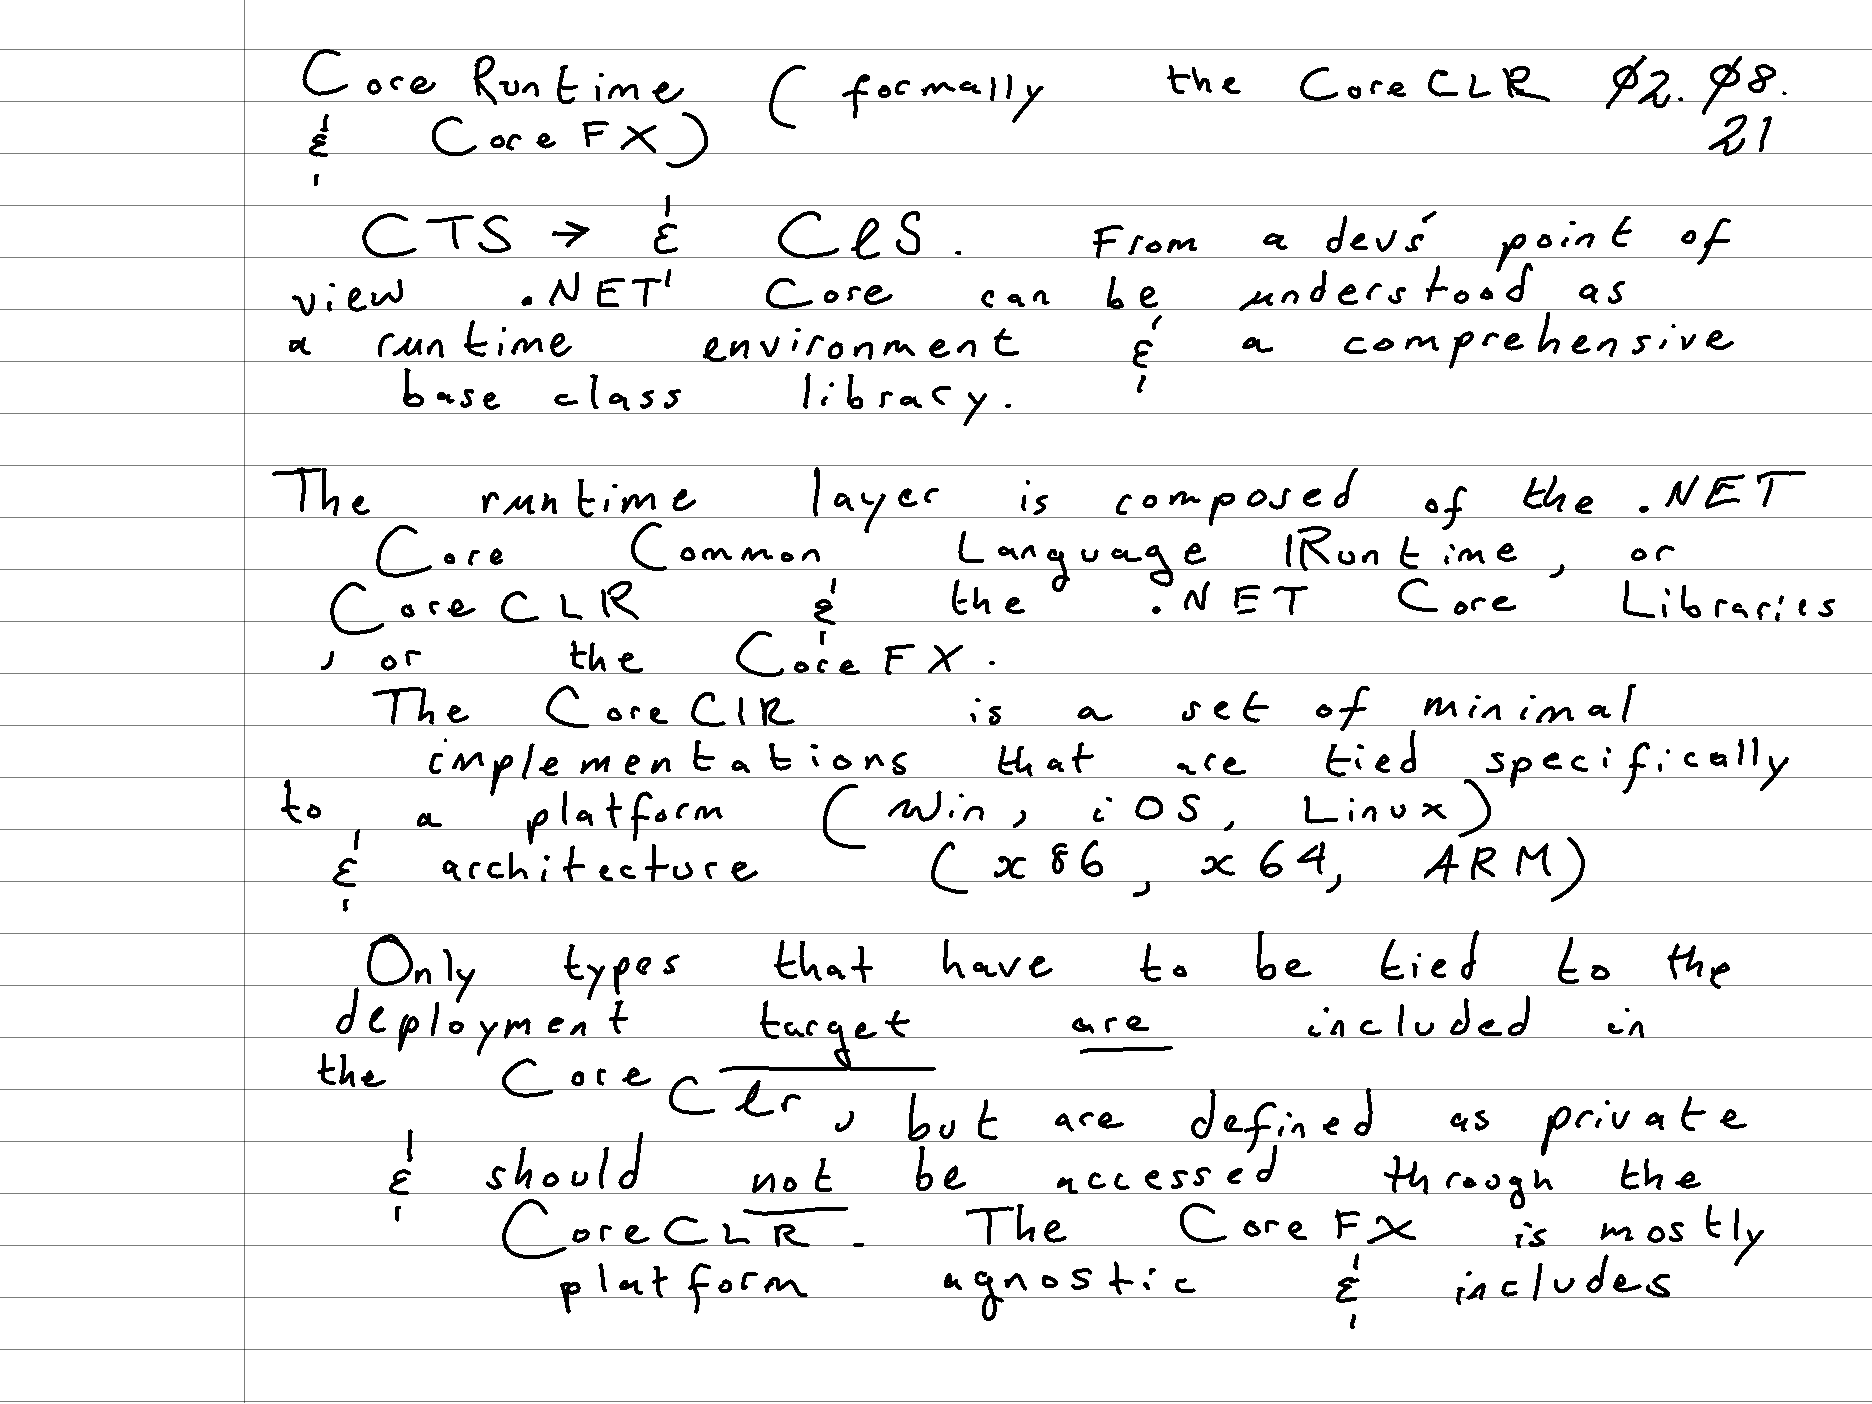 Core Runtime (formally the CoreCLR 02.08.
& CoreFX) 21
CTS → & ClS. From a dev's point of
view .NET' Core can be understood as
a runtime environment & a comprehensive
base class library.
The runtime layer is composed of the .NET
Core Common Language Runtime, or
CoreCLR & the .NET Core Libraries
, or the CoreFX.
The CoreClR is a set of minimal
implementations that are tied specifically
to a platform (Win, iOS, Linux)
& architecture (x86, x64, ARM)
Only types that have to be tied to the
deployment target are included in
the Core
Clr, but are defined as private
& should not be accessed through the
CoreCLR. The CoreFX is mostly
platform agnostic & includes